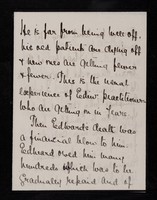 He is far from being well off
his old patients are dying off
& new ones are getting fewer
& fewer. This is the usual
experience of Edin. practitioners
who are getting on in years.
Then Edward's death was
a financial blow to him.
Edward owed him many
hundreds which was to be
gradually repaid and of